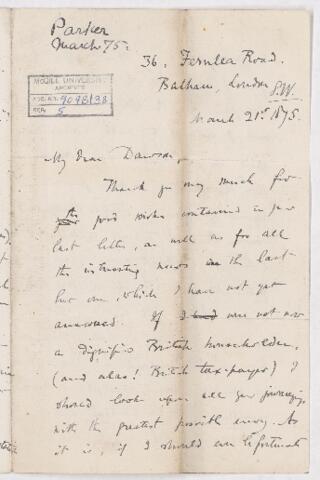 Parker
March 75.
36, Fernlea Road.
Balham, London
S.W.
McGILL UNIVERSITY
ARCHIVES
ACC. NO.
REF. 5
March 21st 1875.
My dear Dawson,
Thank you very much for
the good wishes contained in your
last letter, as well as for all
the interesting news in the last
but one, which I have not yet
answered. If I were not now
a dignified British householder,
(and alas! British tax-payer) I
should look upon all your journeyings
with the greatest possible envy. As
it is, if I should ever be fortunate